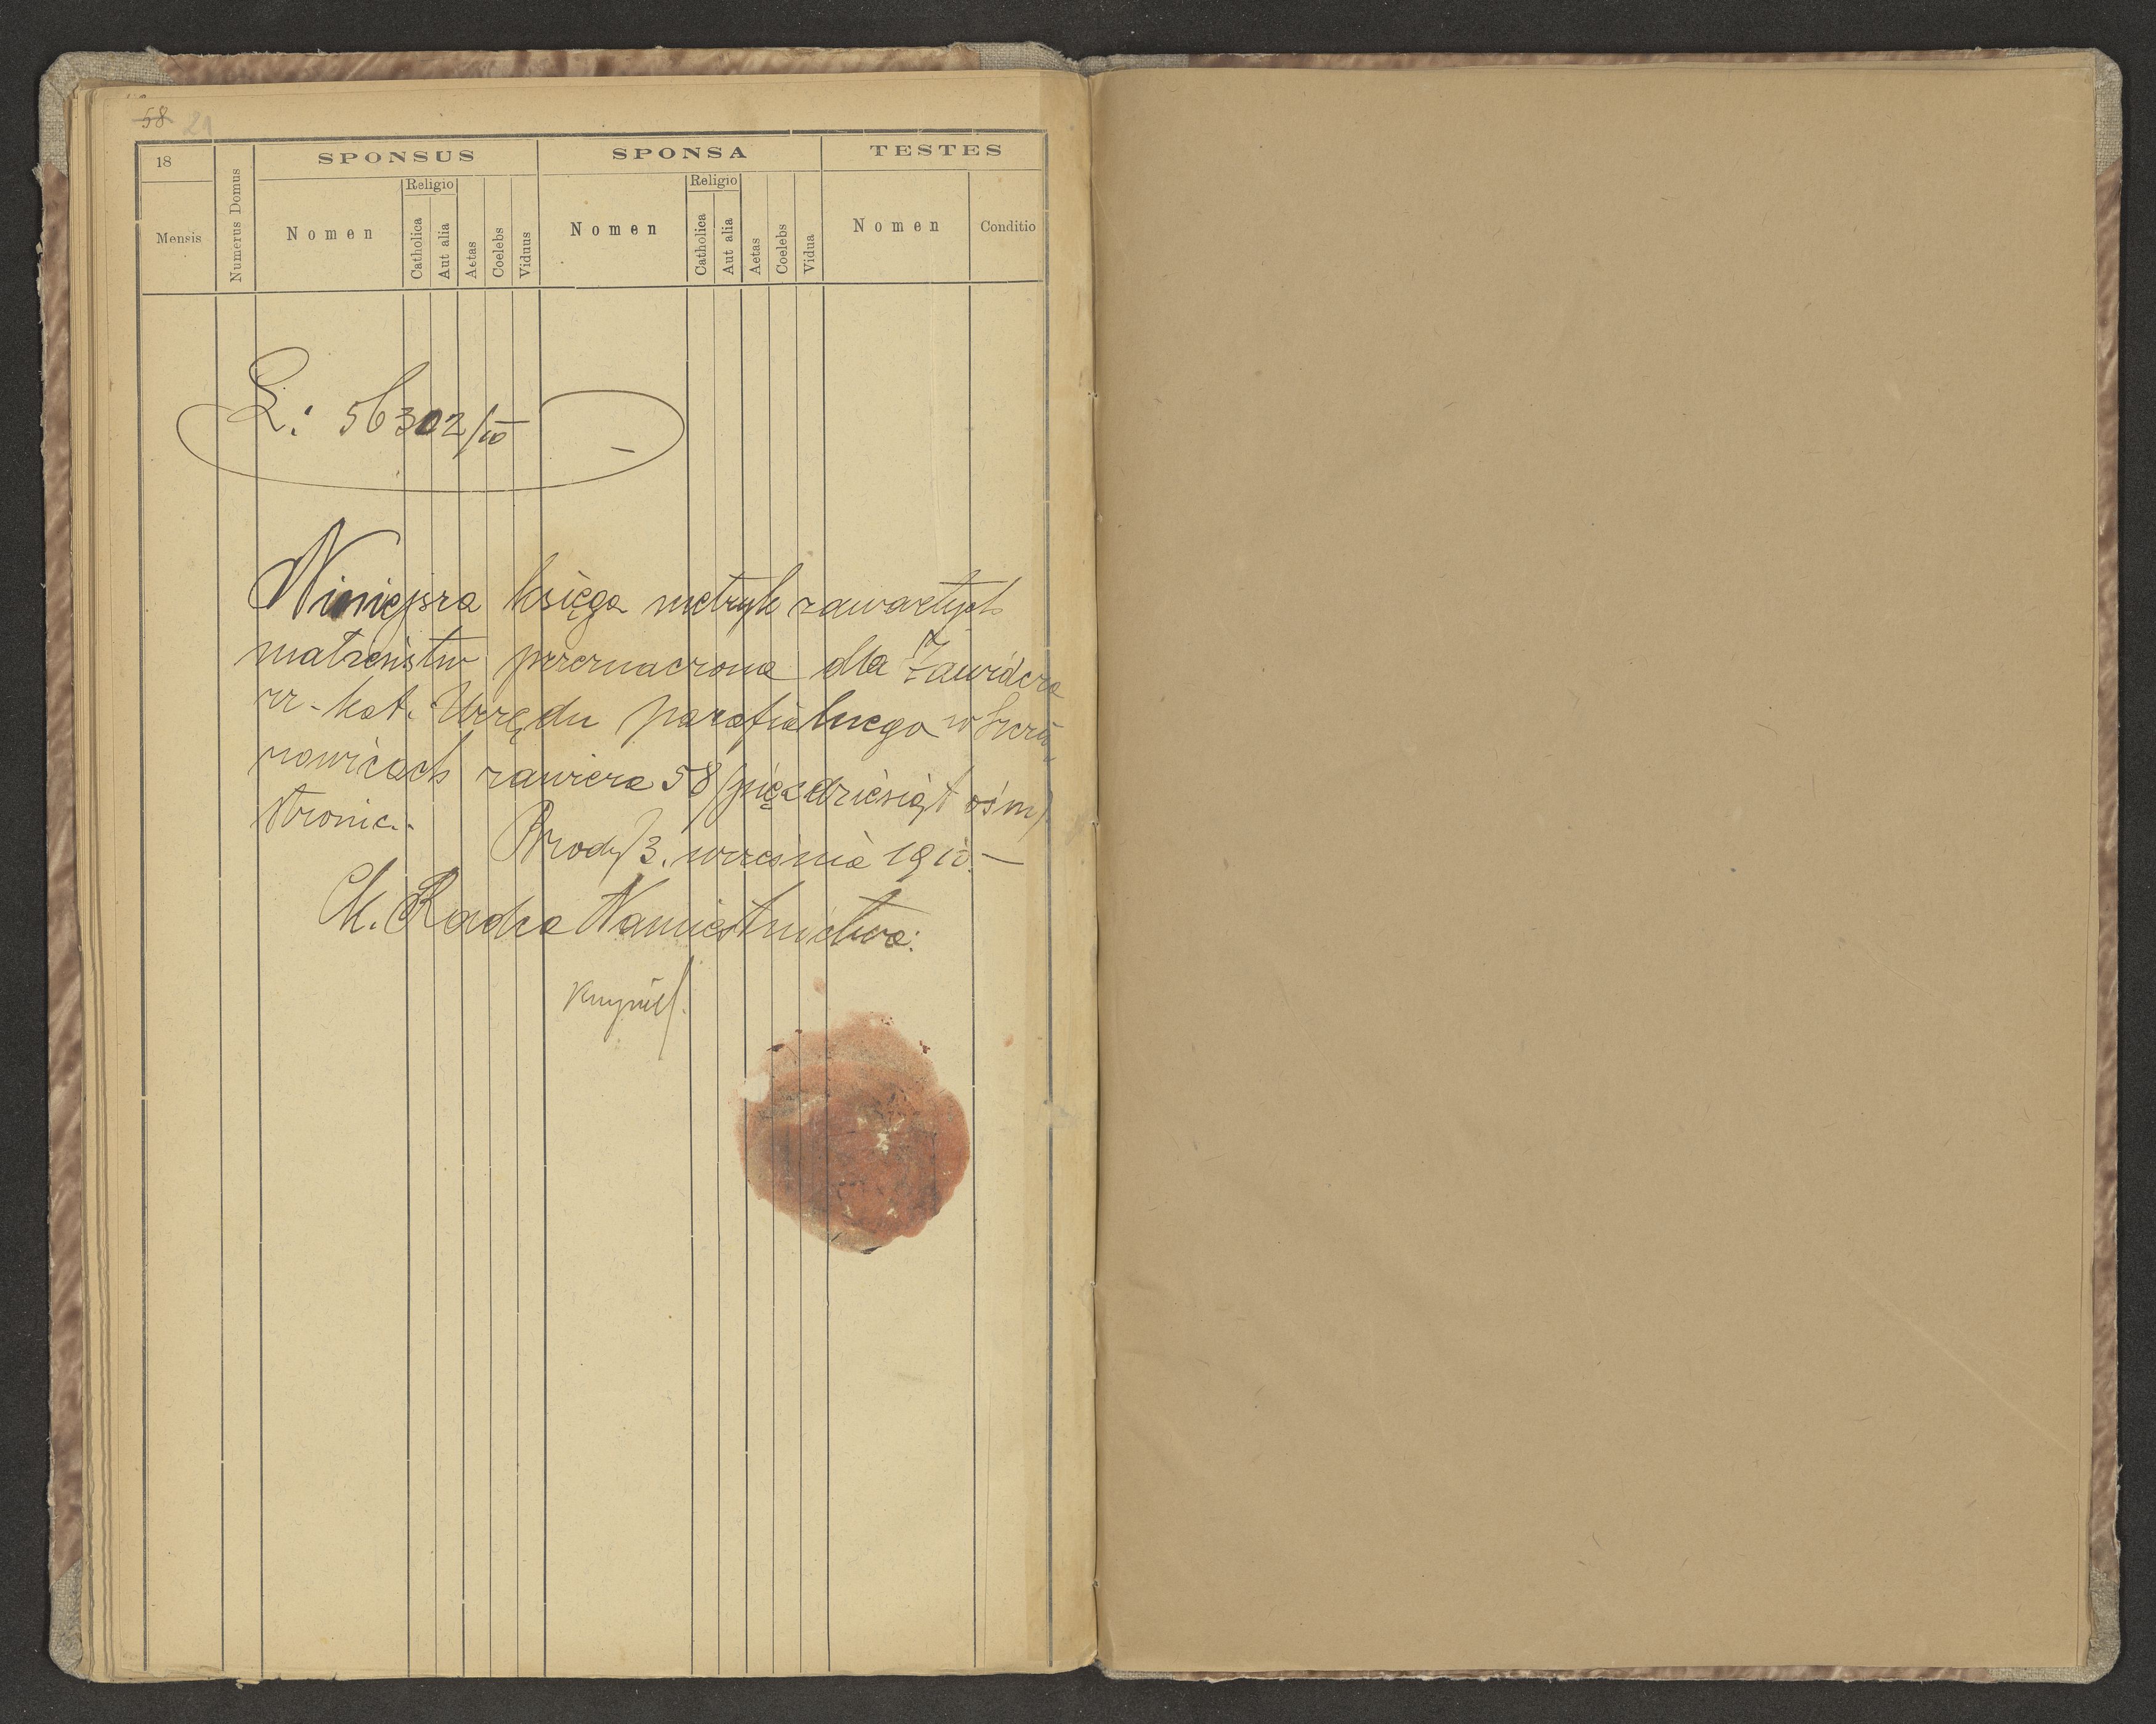 58 29
18
SPONSUS SPONSA TESTES
Mensis Numerus Domus Nomen Religio Catholica Aut alia Aetas Coelebs Viduus Nomen Religio Catholica Aut alia Aetas Coelebs Vidua Nomen Conditio
L: 56302/10
Niniejsza księga metryk zawartych
małżeństw przeznaczona dla Zawidcza
rz-kat. Urzędu parafialnego w Szczu-
rowicach zawiera 58 /pięćdziesiąt ośm/
stronic.
Brody 3. września 1910.
Ck. Radca Namiestnictwa: